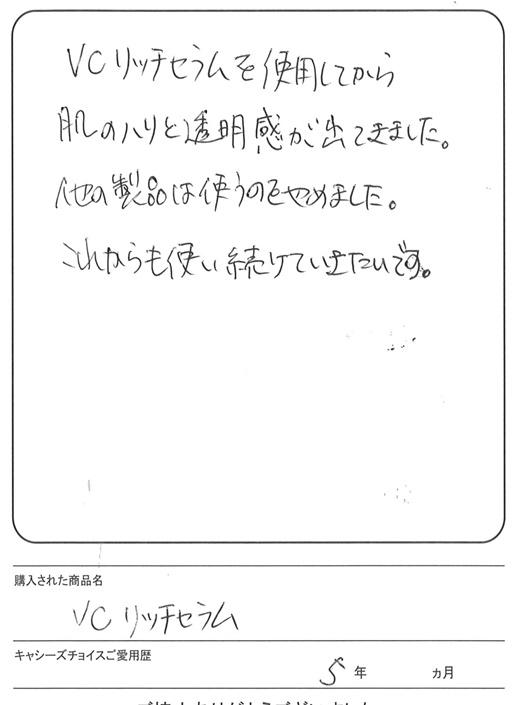 VCリッチセラムを使用してから
肌のハリと透明感が出てきました。
他の製品は使うのをやめました。
これからも使い続けていきたいです。
購入された商品名
VCリッチセラム
キャシーズチョイスご愛用歴
5年 ヵ月